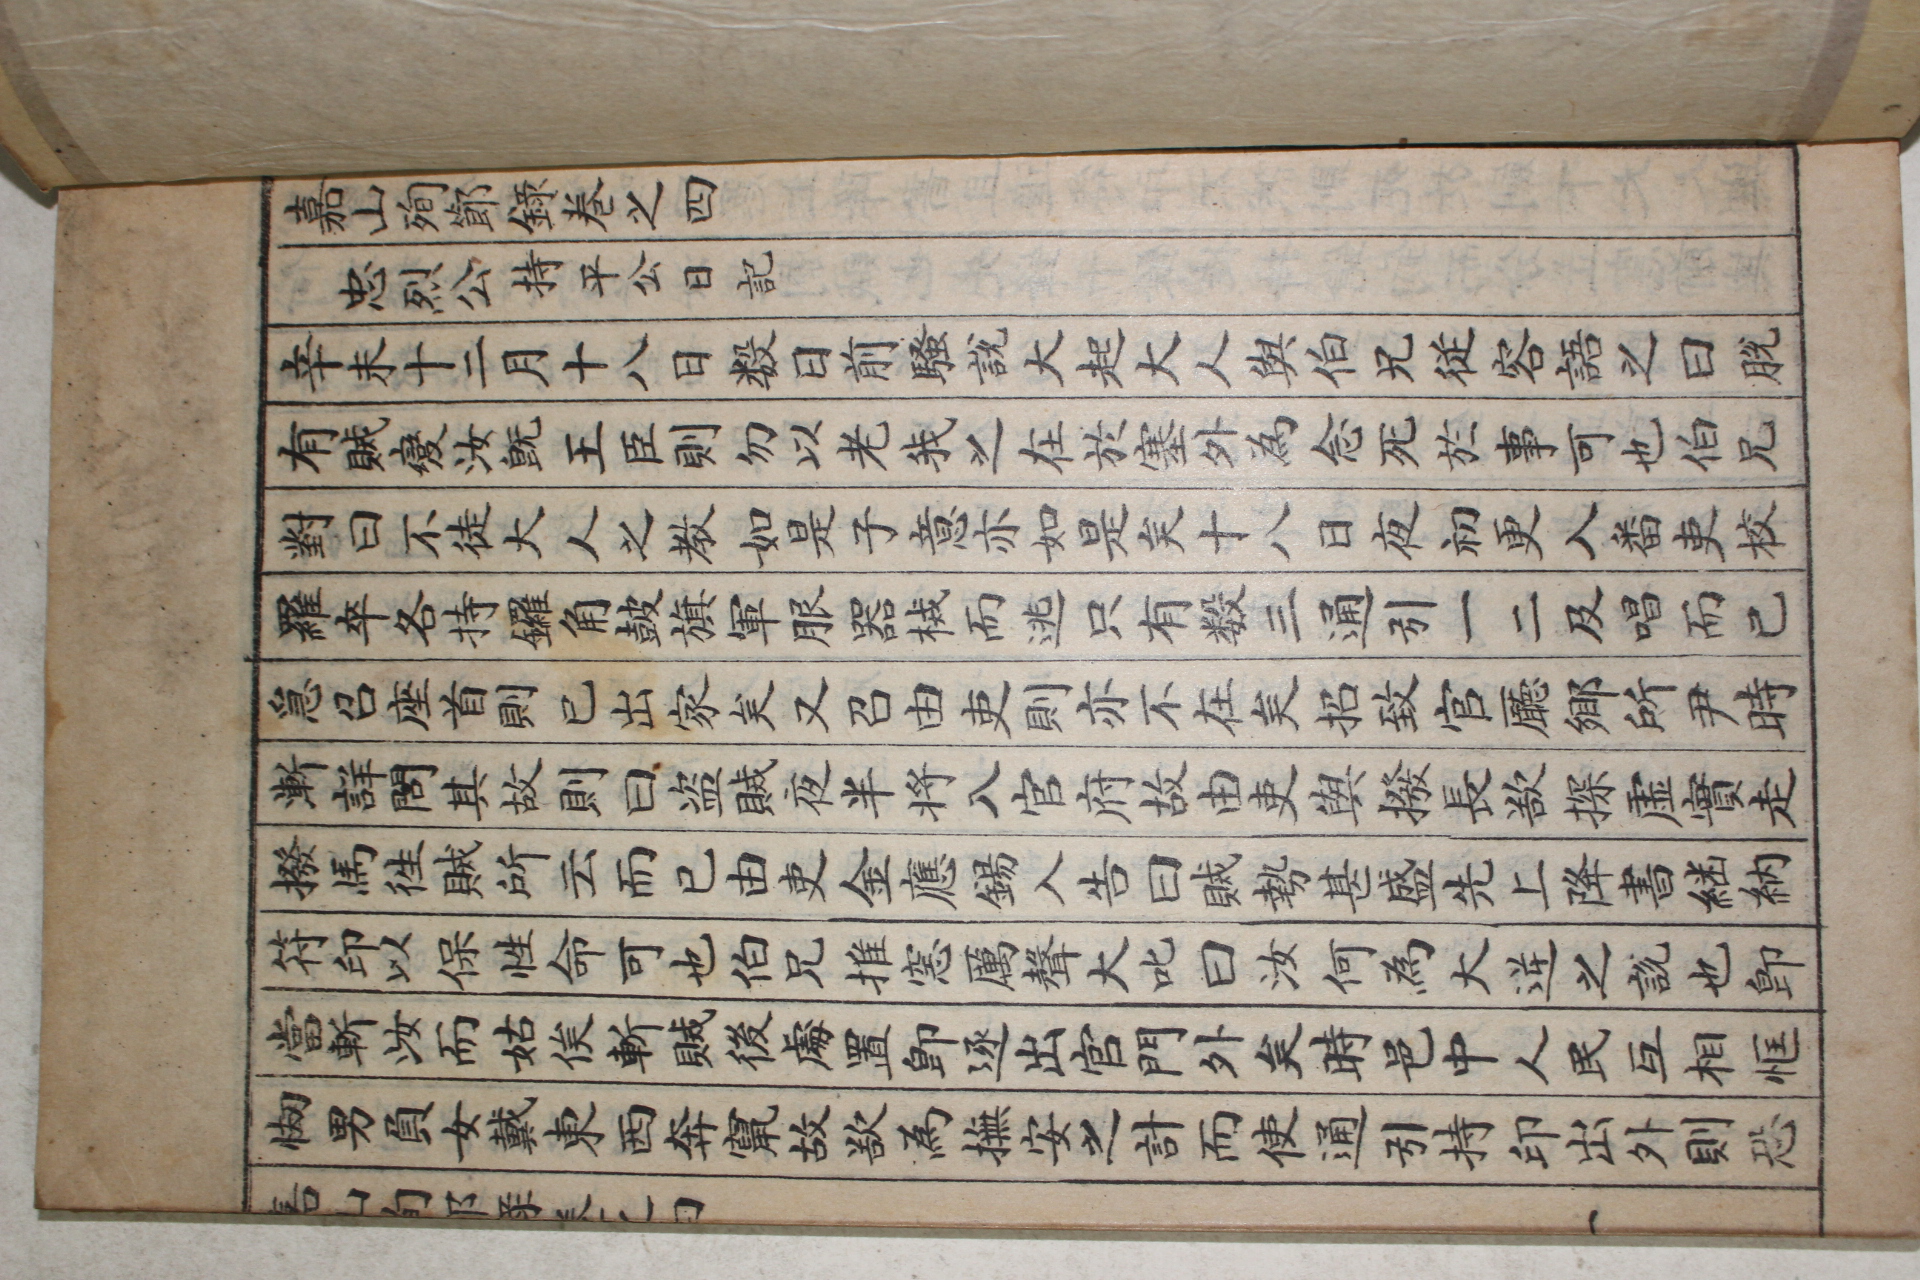 嘉山殉節錄卷之四
忠烈公持平公日記
辛未十二月十八日數日前騷說大起大人與伯兄從容語之曰脫
有賊變汝旣王臣則勿以老我之在於塞外為念死於事可也伯兄
對曰不徒大人之教如是子意亦如是矣十八日夜初更入番吏校
羅卒各持鑼角鼓旗軍服器械而逃只有数三通引一二及唱而已
急召座首則已出家矣又召由吏則亦不在矣招致官廳鄉所尹時
漸詳問其故則曰盜賊夜半将入官府故由吏與撥長欲探虛實走
撥馬徃賊所云而已由吏金應錫入告曰賊勢甚盛先上降書継納
符印以保性命可也伯兄推窓厲聲大叱曰汝何為大逆之說也卽
當斬汝而姑俟斬賊後處置卽逐出官門外矣時邑中人民互相恇
㤼男負女戴東西奔竄故欲為撫安之計而使通引持印出外則恐